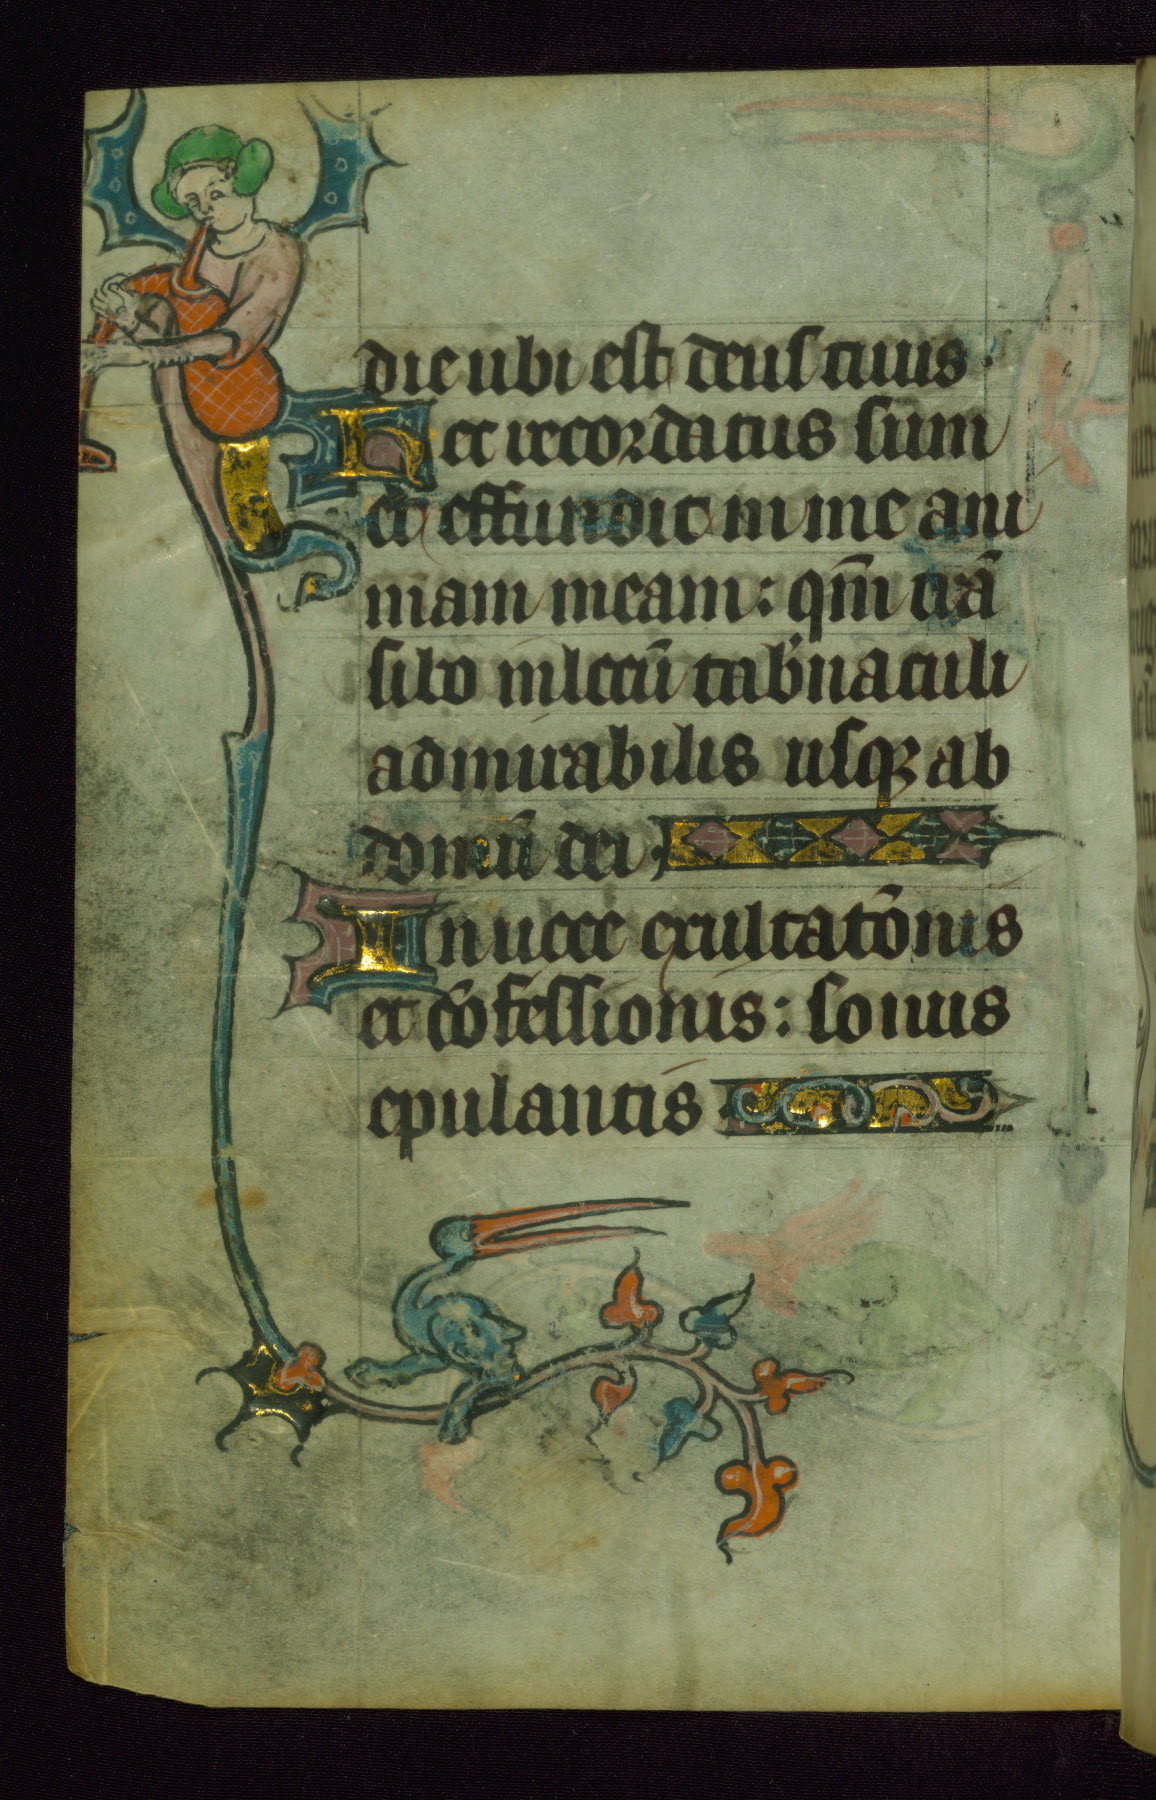 die ubi est deus tuus ·
hec recordatus sum
et effundit in me ani
mam meam : qm̄ trā
sibo in locū tab'naculi
admirabilis usq; ab
domū dei
In voce exultatōnis
et cōfessionis : sonus
epulantis